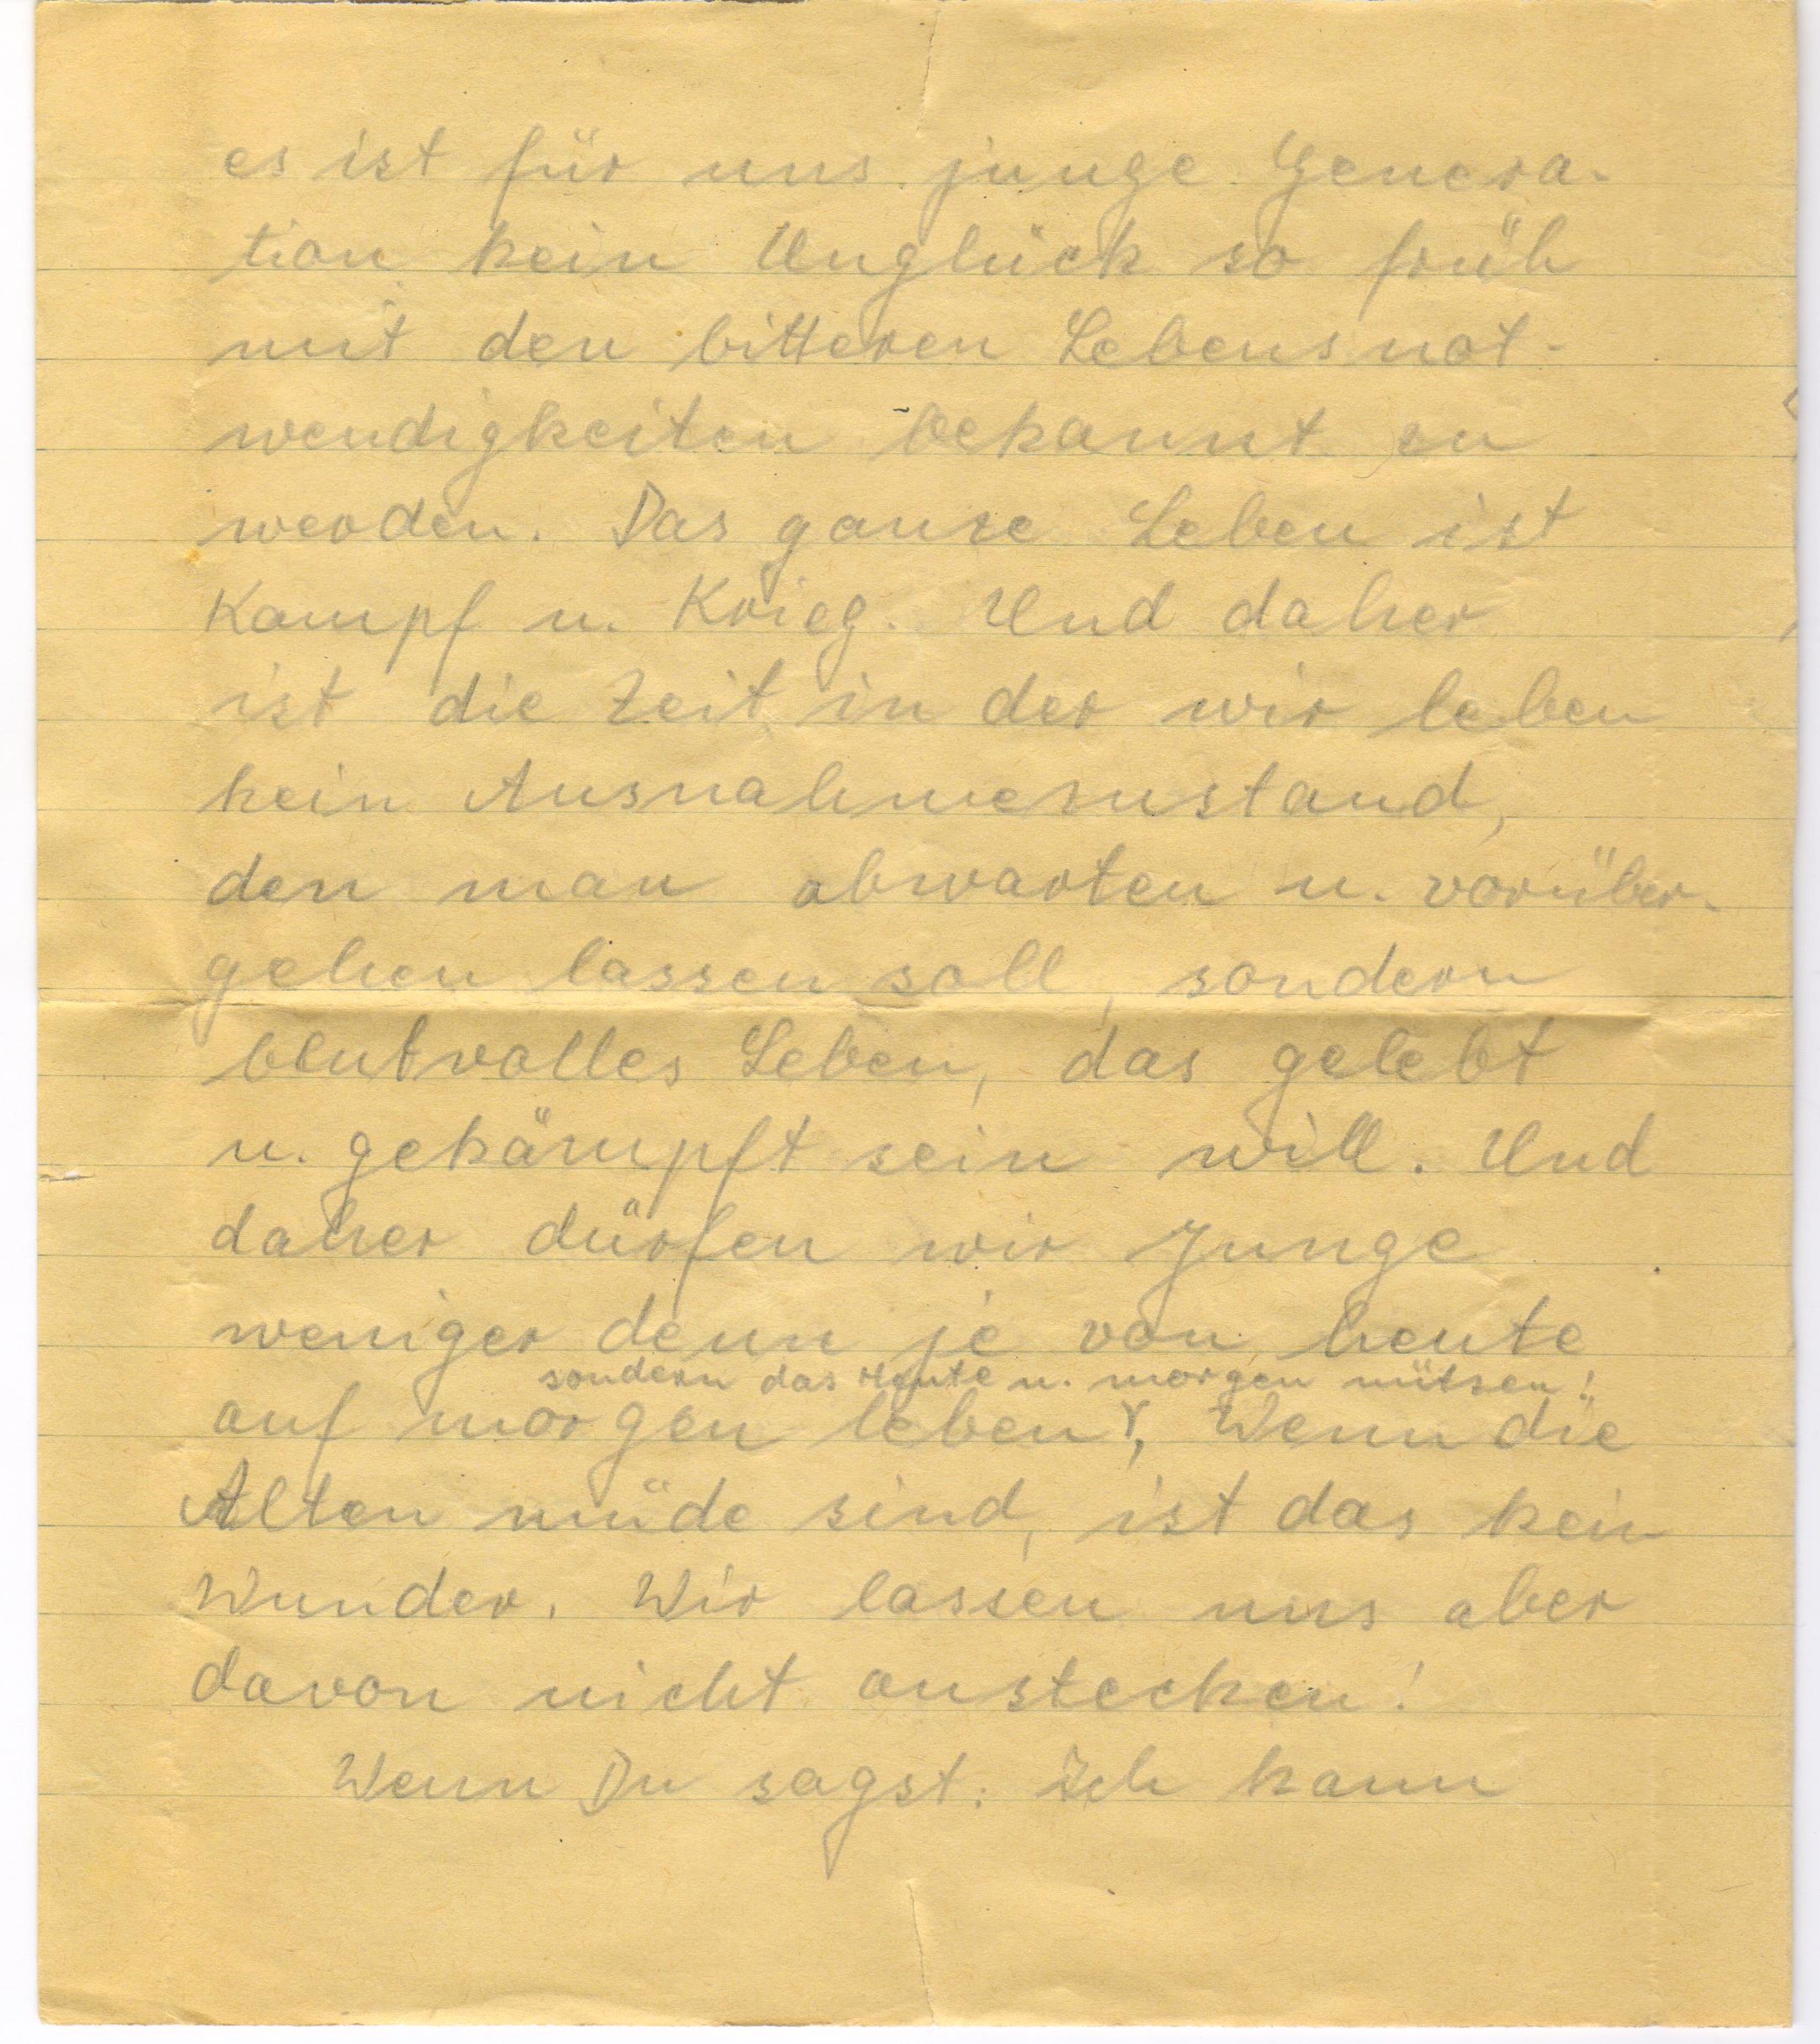 es ist für uns junge Genera-
tion kein Unglück so früh
mit den bitteren Lebensnot-
wendigkeiten bekannt zu
werden. Das ganze Leben ist
Kampf u. Krieg. Und daher
ist die Zeit, in der wir leben
kein Ausnahmezustand,
den man abwarten u. vorüber-
gehen lassen soll, sondern
blutvolles Leben, das gelebt
u. gekämpft sein will. Und
daher dürfen wir Junge
weniger denn je von heute
sondern das Heute u. morgen nützen!
auf morgen leben, Wenn die
Alten müde sind, ist das kein
Wunder. Wir lassen uns aber
davon nicht anstecken!
Wenn Du sagst: Ich kann